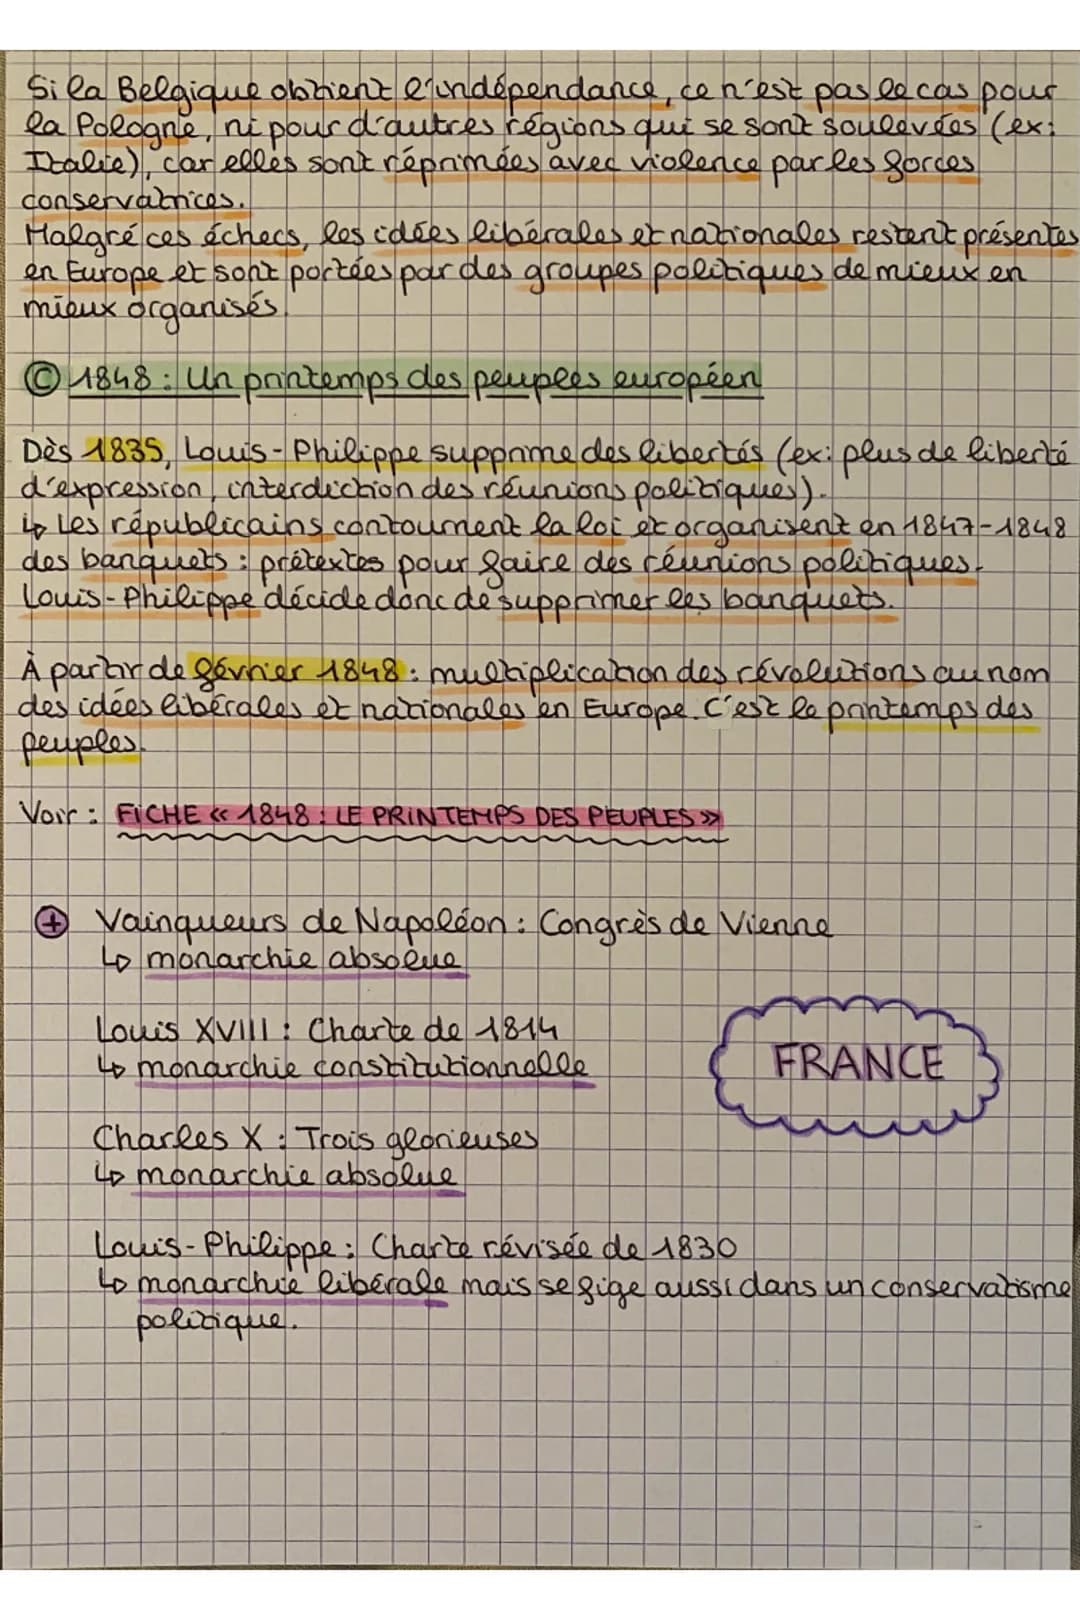 Si la Belgique obtient l'indépendance, ce n'est pas le cas pour
la Pologne, ni pour d'autres régions qui se sont soulevées (ex:
Italie), car elles sont réprimées avec violence par les forces
conservatrices.
Malgré ces échecs, les idées libérales et nationales restent présentes
en Europe et sont portées par des groupes politiques de mieux en
mieux organisés.
Ⓒ 1848 : Un printemps des peuples européen
Dès 1835, Louis-Philippe supprime des libertés (ex: plus de liberté
d'expression, interdiction des réunions politiques).
↳ Les républicains contournent la loi et organisent en 1847-1848
des banquets : prétextes pour faire des réunions politiques.
Louis-Philippe décide donc de supprimer les banquets.
À partir de février 1848 : multiplication des révolutions au nom
des idées libérales et nationales en Europe. C'est le printemps des
peuples.
Voir : FICHE « 1848 : LE PRINTEMPS DES PEUPLES »
⊕ Vainqueurs de Napoléon : Congrès de Vienne
↳ monarchie absolue
Louis XVIII : Charte de 1814
↳ monarchie constitutionnelle
FRANCE
Charles X : Trois glorieuses
↳ monarchie absolue
Louis-Philippe : Charte révisée de 1830
↳ monarchie libérale mais se fige aussi dans un conservatisme
politique.